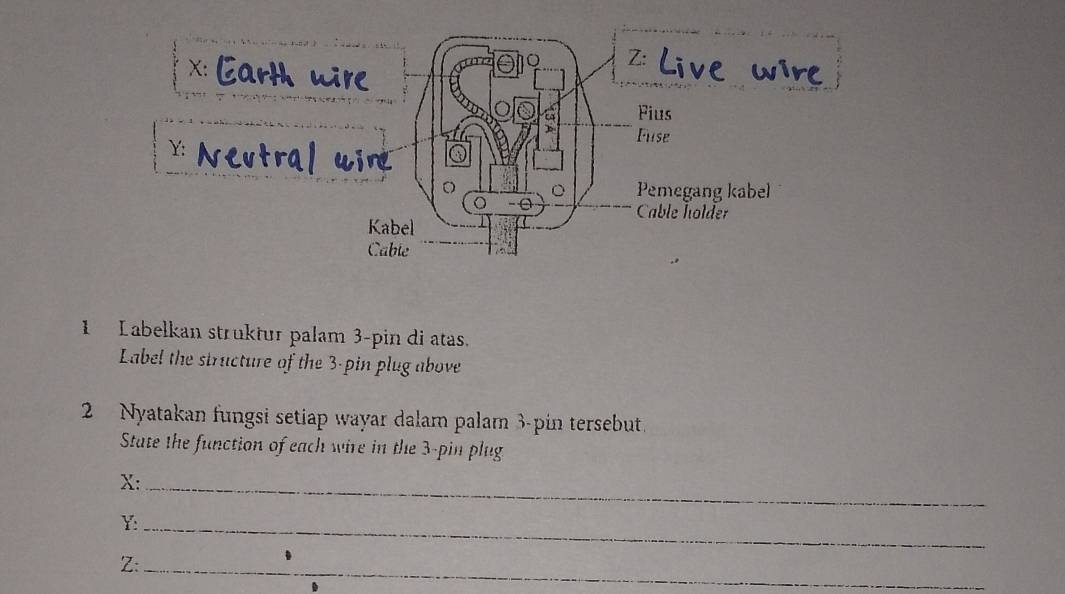 X: Earth wire
Z: Live wire
Fius
Fuse
13 A
Y: Neutral wire
Pemegang kabel
Cable holder
Kabel
Cable
1 Labelkan struktur palam 3-pin di atas.
Label the structure of the 3-pin plug above
2 Nyatakan fungsi setiap wayar dalam palam 3-pin tersebut.
State the function of each wire in the 3-pin plug
X:
Y:
Z: